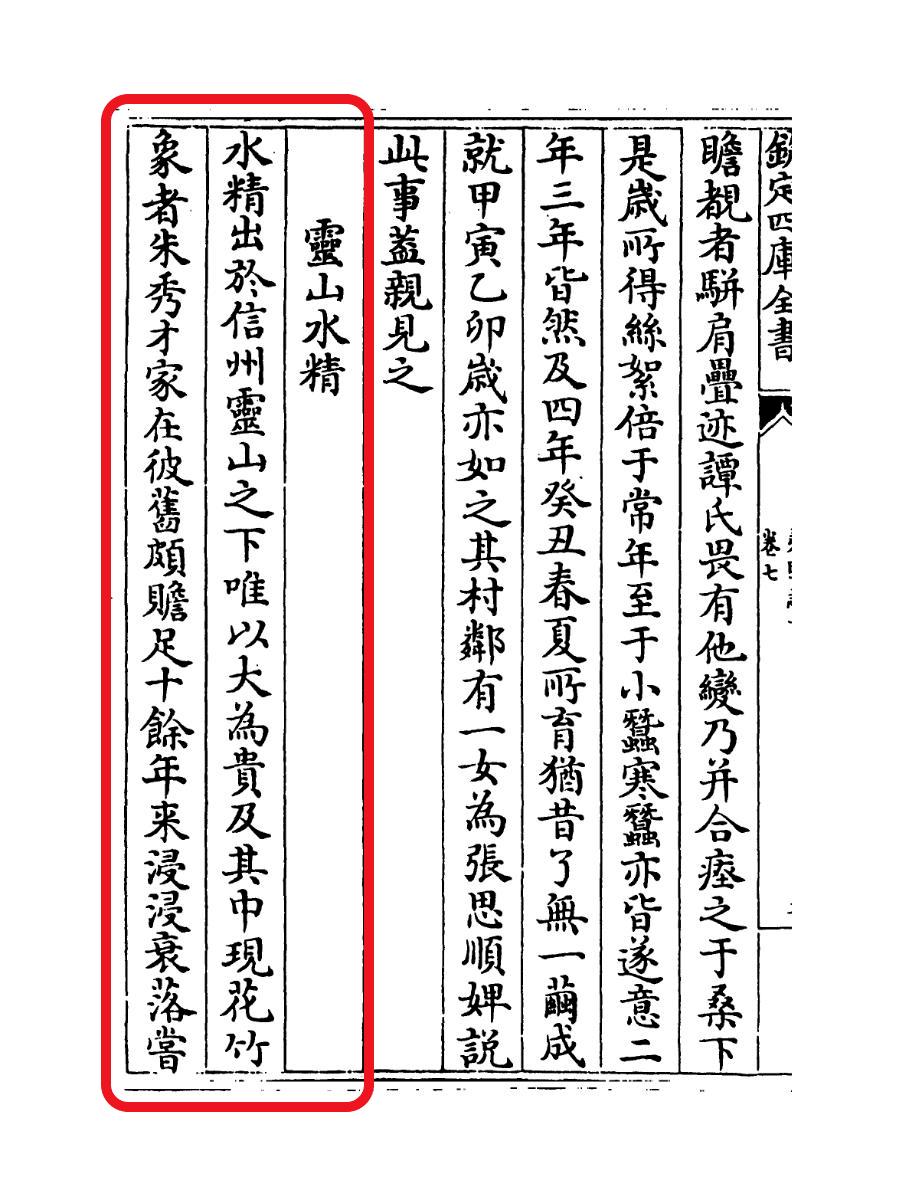 欽定四庫全書
卷七
瞻覩者駢肩疊迹譚氏畏有他變乃并合瘞之于桑下
是歲所得絲絮倍于常年至于小蠶寒蠶亦皆遂意二
年三年皆然及四年癸丑春夏所育猶昔了無一繭成
就甲寅乙卯歲亦如之其村鄰有一女為張思順婢說
此事葢親見之
靈山水精
水精出於信州靈山之下唯以大為貴及其中現花竹
象者朱秀才家在彼舊頗贍足十餘年来浸浸衰落嘗